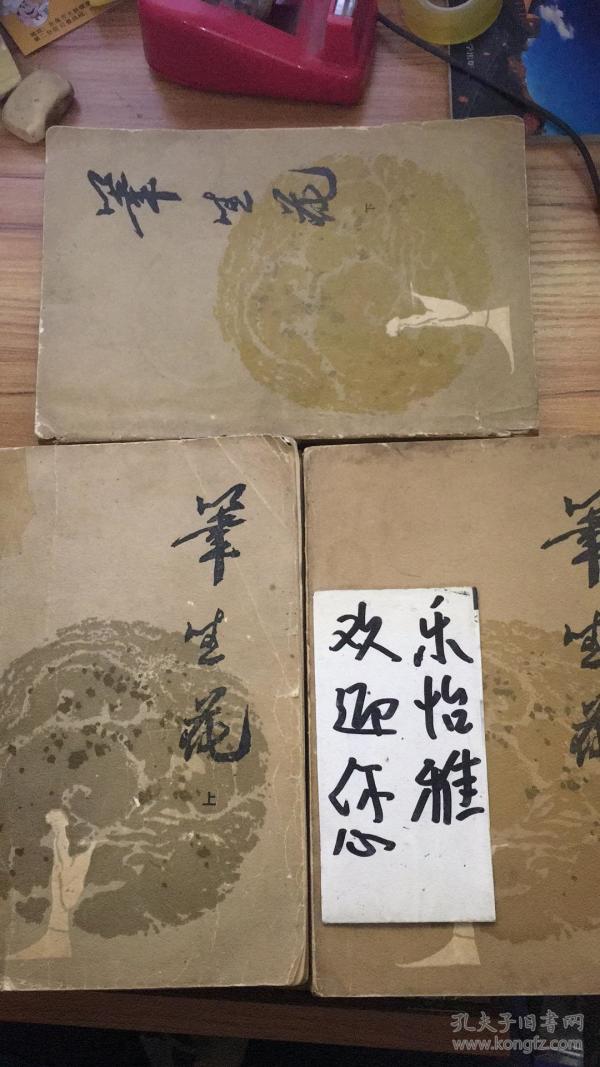 筆生花
下
筆生花
上
筆生花
乐怡雅
欢迎您
孔夫子旧书网
www.kongfz.com